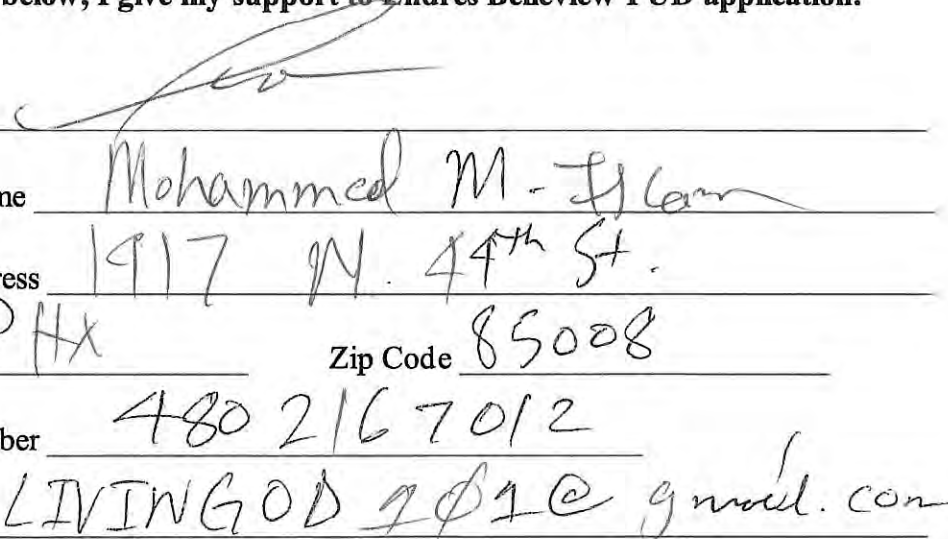 below, I give my support to Endres Belleview PUD application.
me Mohammed M. Islam
ress 1917 N. 44th St.
PHX Zip Code 85008
ber 480 216 7012
LIVINGOD 101@ gmail.com